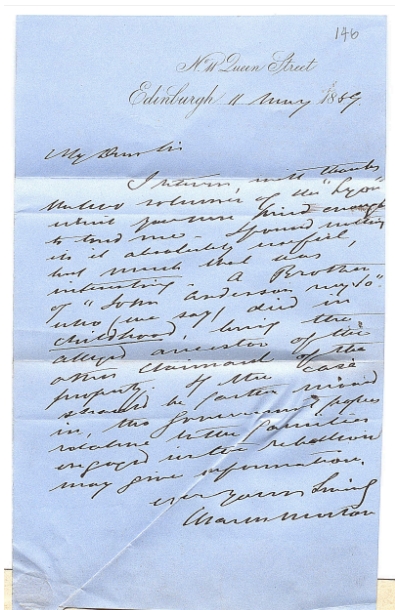 146
No. 11 Queen Street
Edinburgh 11 May 1859
My Dear Sir
I return with thanks
the two volumes of the "Lyon"
which you were kind enough
to lend me - I found nothing
in it absolutely useful,
but much that was
interesting - A Brother
of "John Anderson my Jo"
who (we say) died in
childhood, being the
alleged ancestor of the
other claimant of the
property. If the case
should be further moved
in, the Government papers
relative to the families
engaged in the rebellion
may give information.
ever yours
Charles Morton